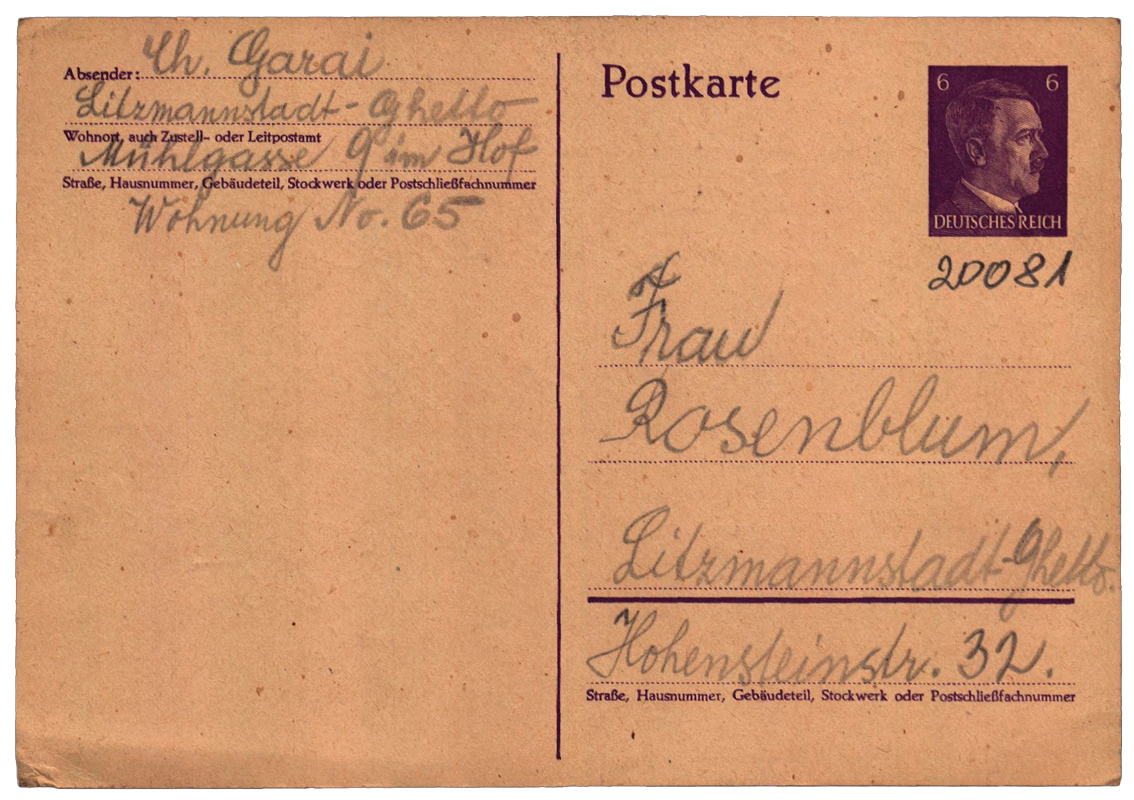 Absender: Ch. Garai
Litzmannstadt-Ghetto
Wohnort, auch Zustell- oder Leitpostamt
Mühlgasse 9 im Hof
Straße, Hausnummer, Gebäudeteil, Stockwerk oder Postschließfachnummer
Wohnung No. 65
Postkarte
6 6
DEUTSCHES REICH
20081
Frau
Rosenblum,
Litzmannstadt-Ghetto.
Hohensteinstr. 32.
Straße, Hausnummer, Gebäudeteil, Stockwerk oder Postschließfachnummer